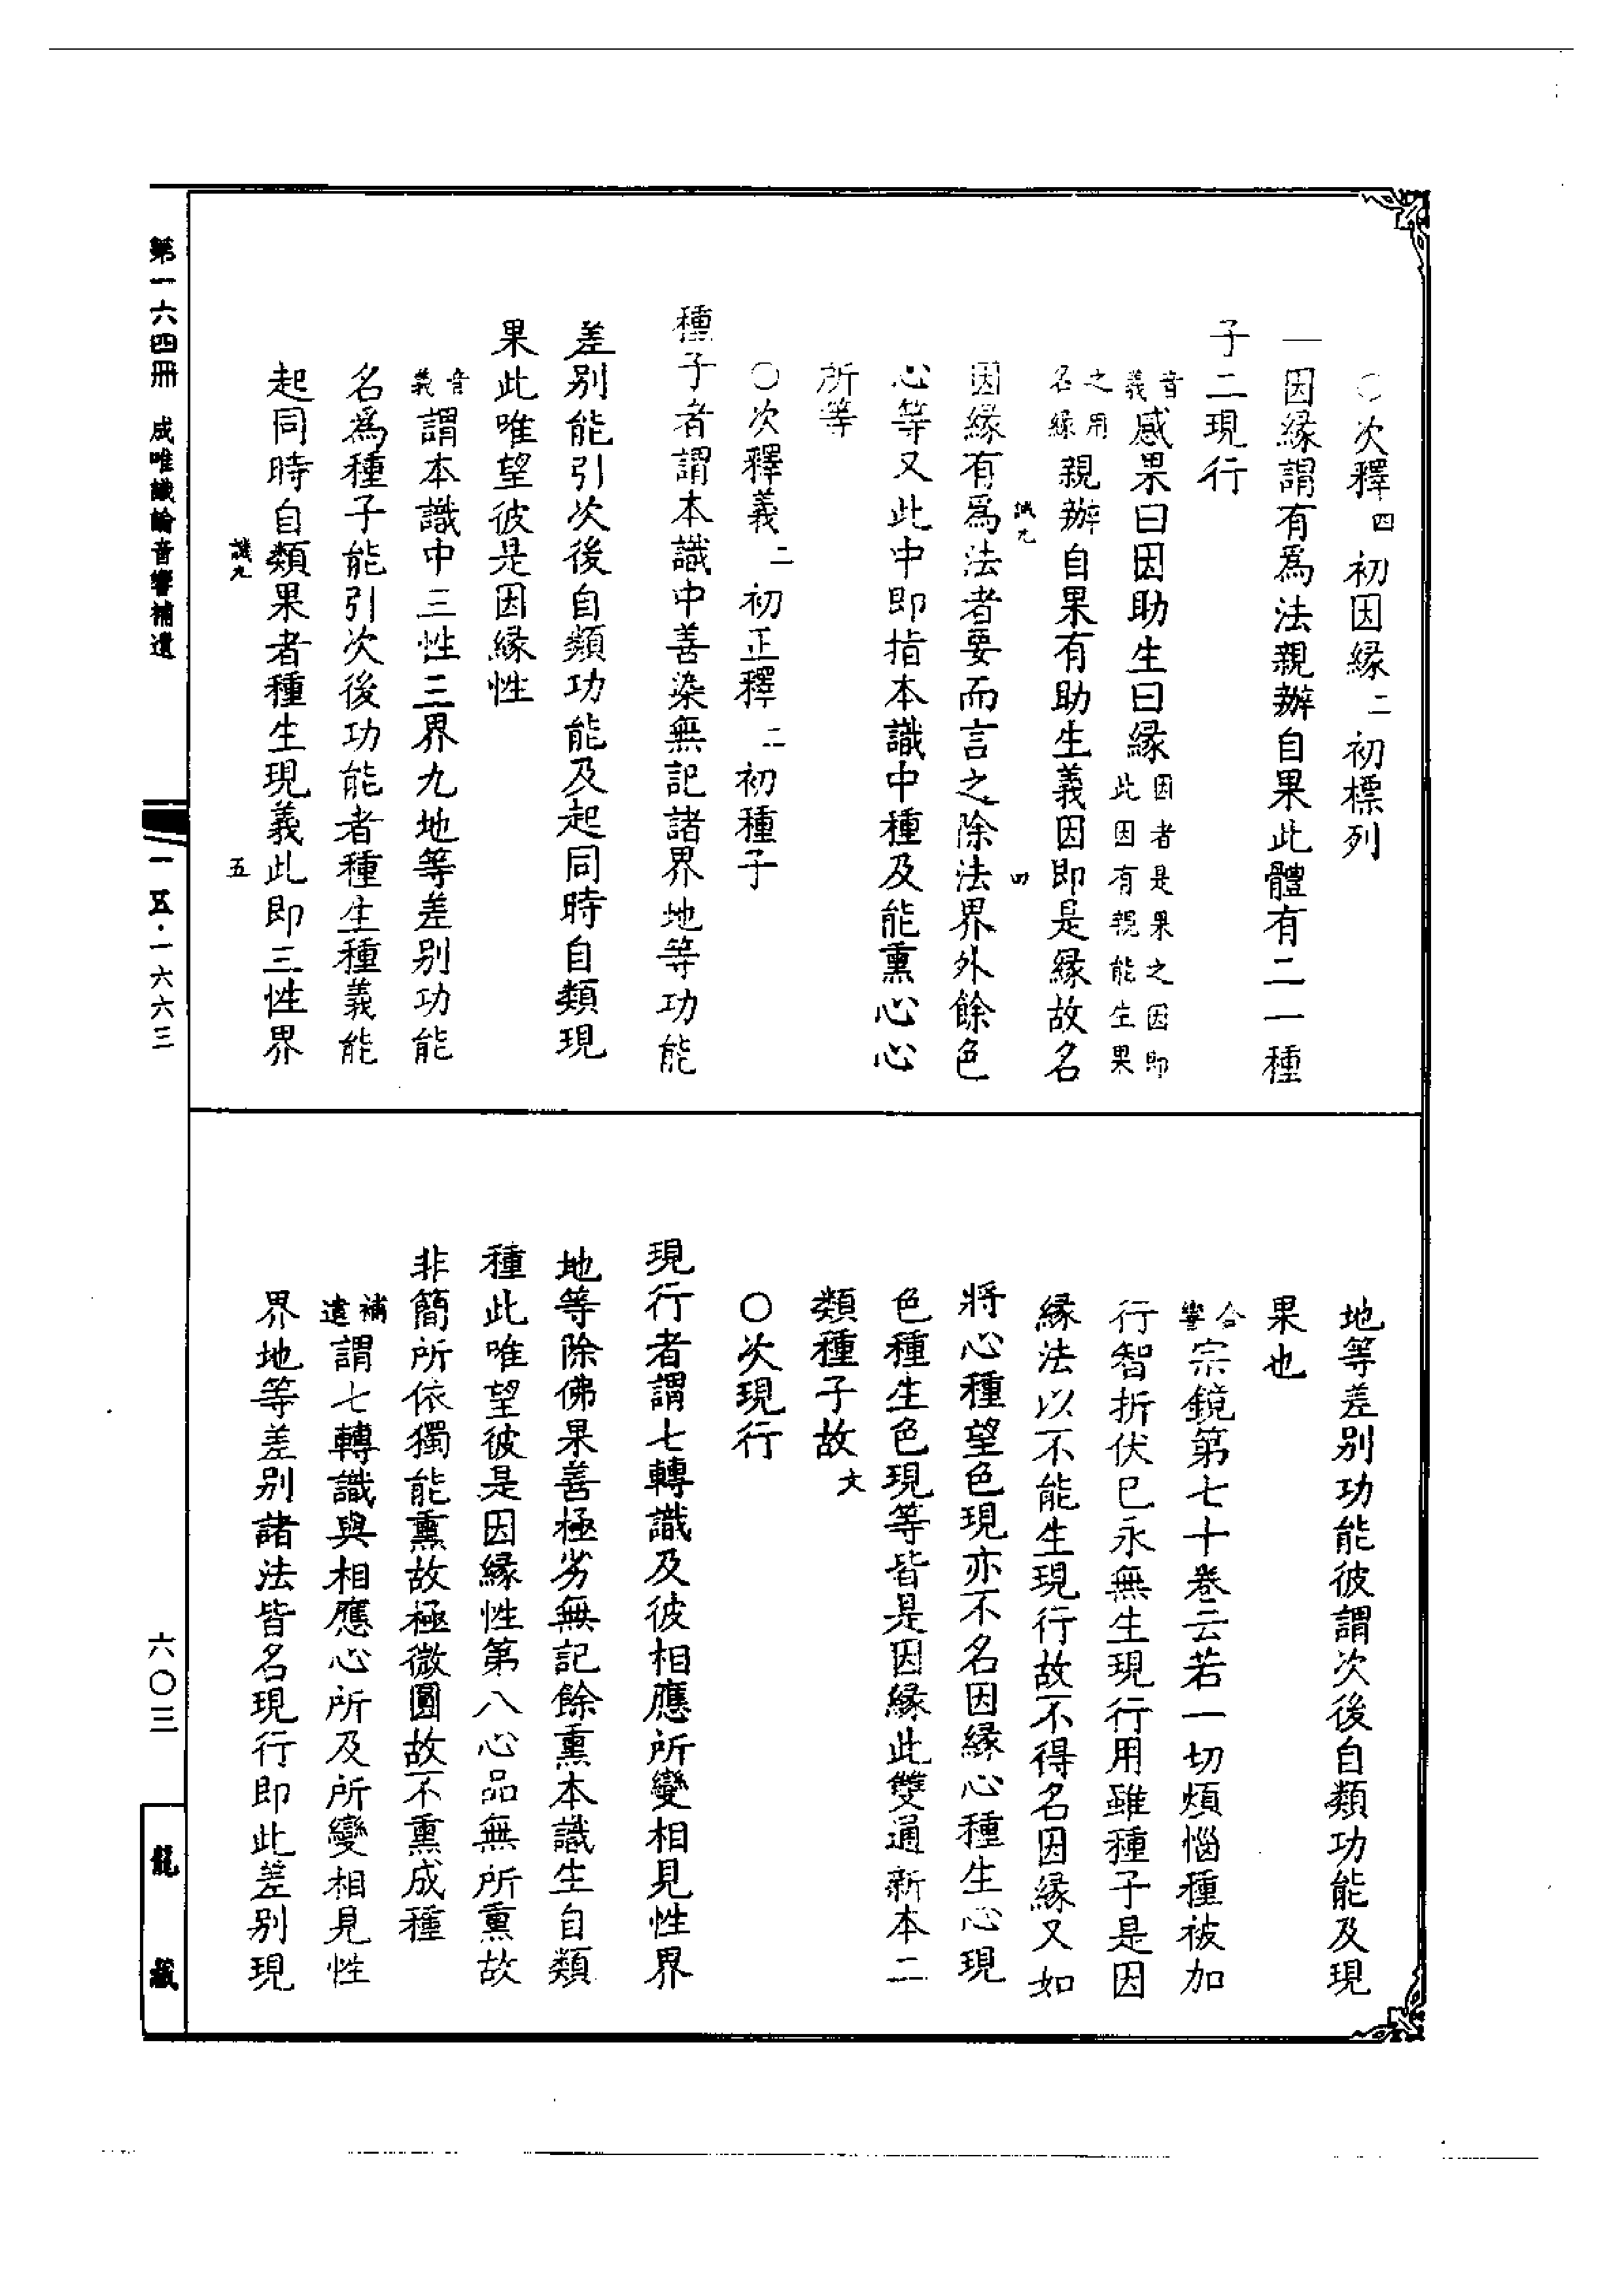 ○次釋四初因緣二初標列
一因緣謂有爲法親辦自果此體有二一種
子二現行
音義感果曰因助生曰緣因者是果之因即此因有親能生果
之用名緣親辦自果有助生義因即是緣故名
因緣有爲法者要而言之除法界外餘色
心等又此中即指本識中種及能熏心心
所等
○次釋義二初正釋二初種子
種子者謂本識中善染無記諸界地等功能
差別能引次後自類功能及起同時自類現
果此唯望彼是因緣性
音義謂本識中三性三界九地等差別功能
名爲種子能引次後功能者種生種義能
起同時自類果者種生現義此即三性界
識九 四
識九 五
地等差別功能彼謂次後自類功能及現
果也
合響宗鏡第七十卷云若一切煩惱種被加
行智折伏已永無生現行用雖種子是因
緣法以不能生現行故不得名因緣又如
將心種望色現亦不名因緣心種生心現
色種生色現等皆是因緣此雙通新本二
類種子故文
○次現行
現行者謂七轉識及彼相應所變相見性界
地等除佛果善極劣無記餘熏本識生自類
種此唯望彼是因緣性第八心品無所熏故
非簡所依獨能熏故極微圓故不熏成種
補遺謂七轉識與相應心所及所變相見性
界地等差別諸法皆名現行即此差別現
第一六四冊 成唯識論音響補遺
一五·一六六三
六〇三
龍藏